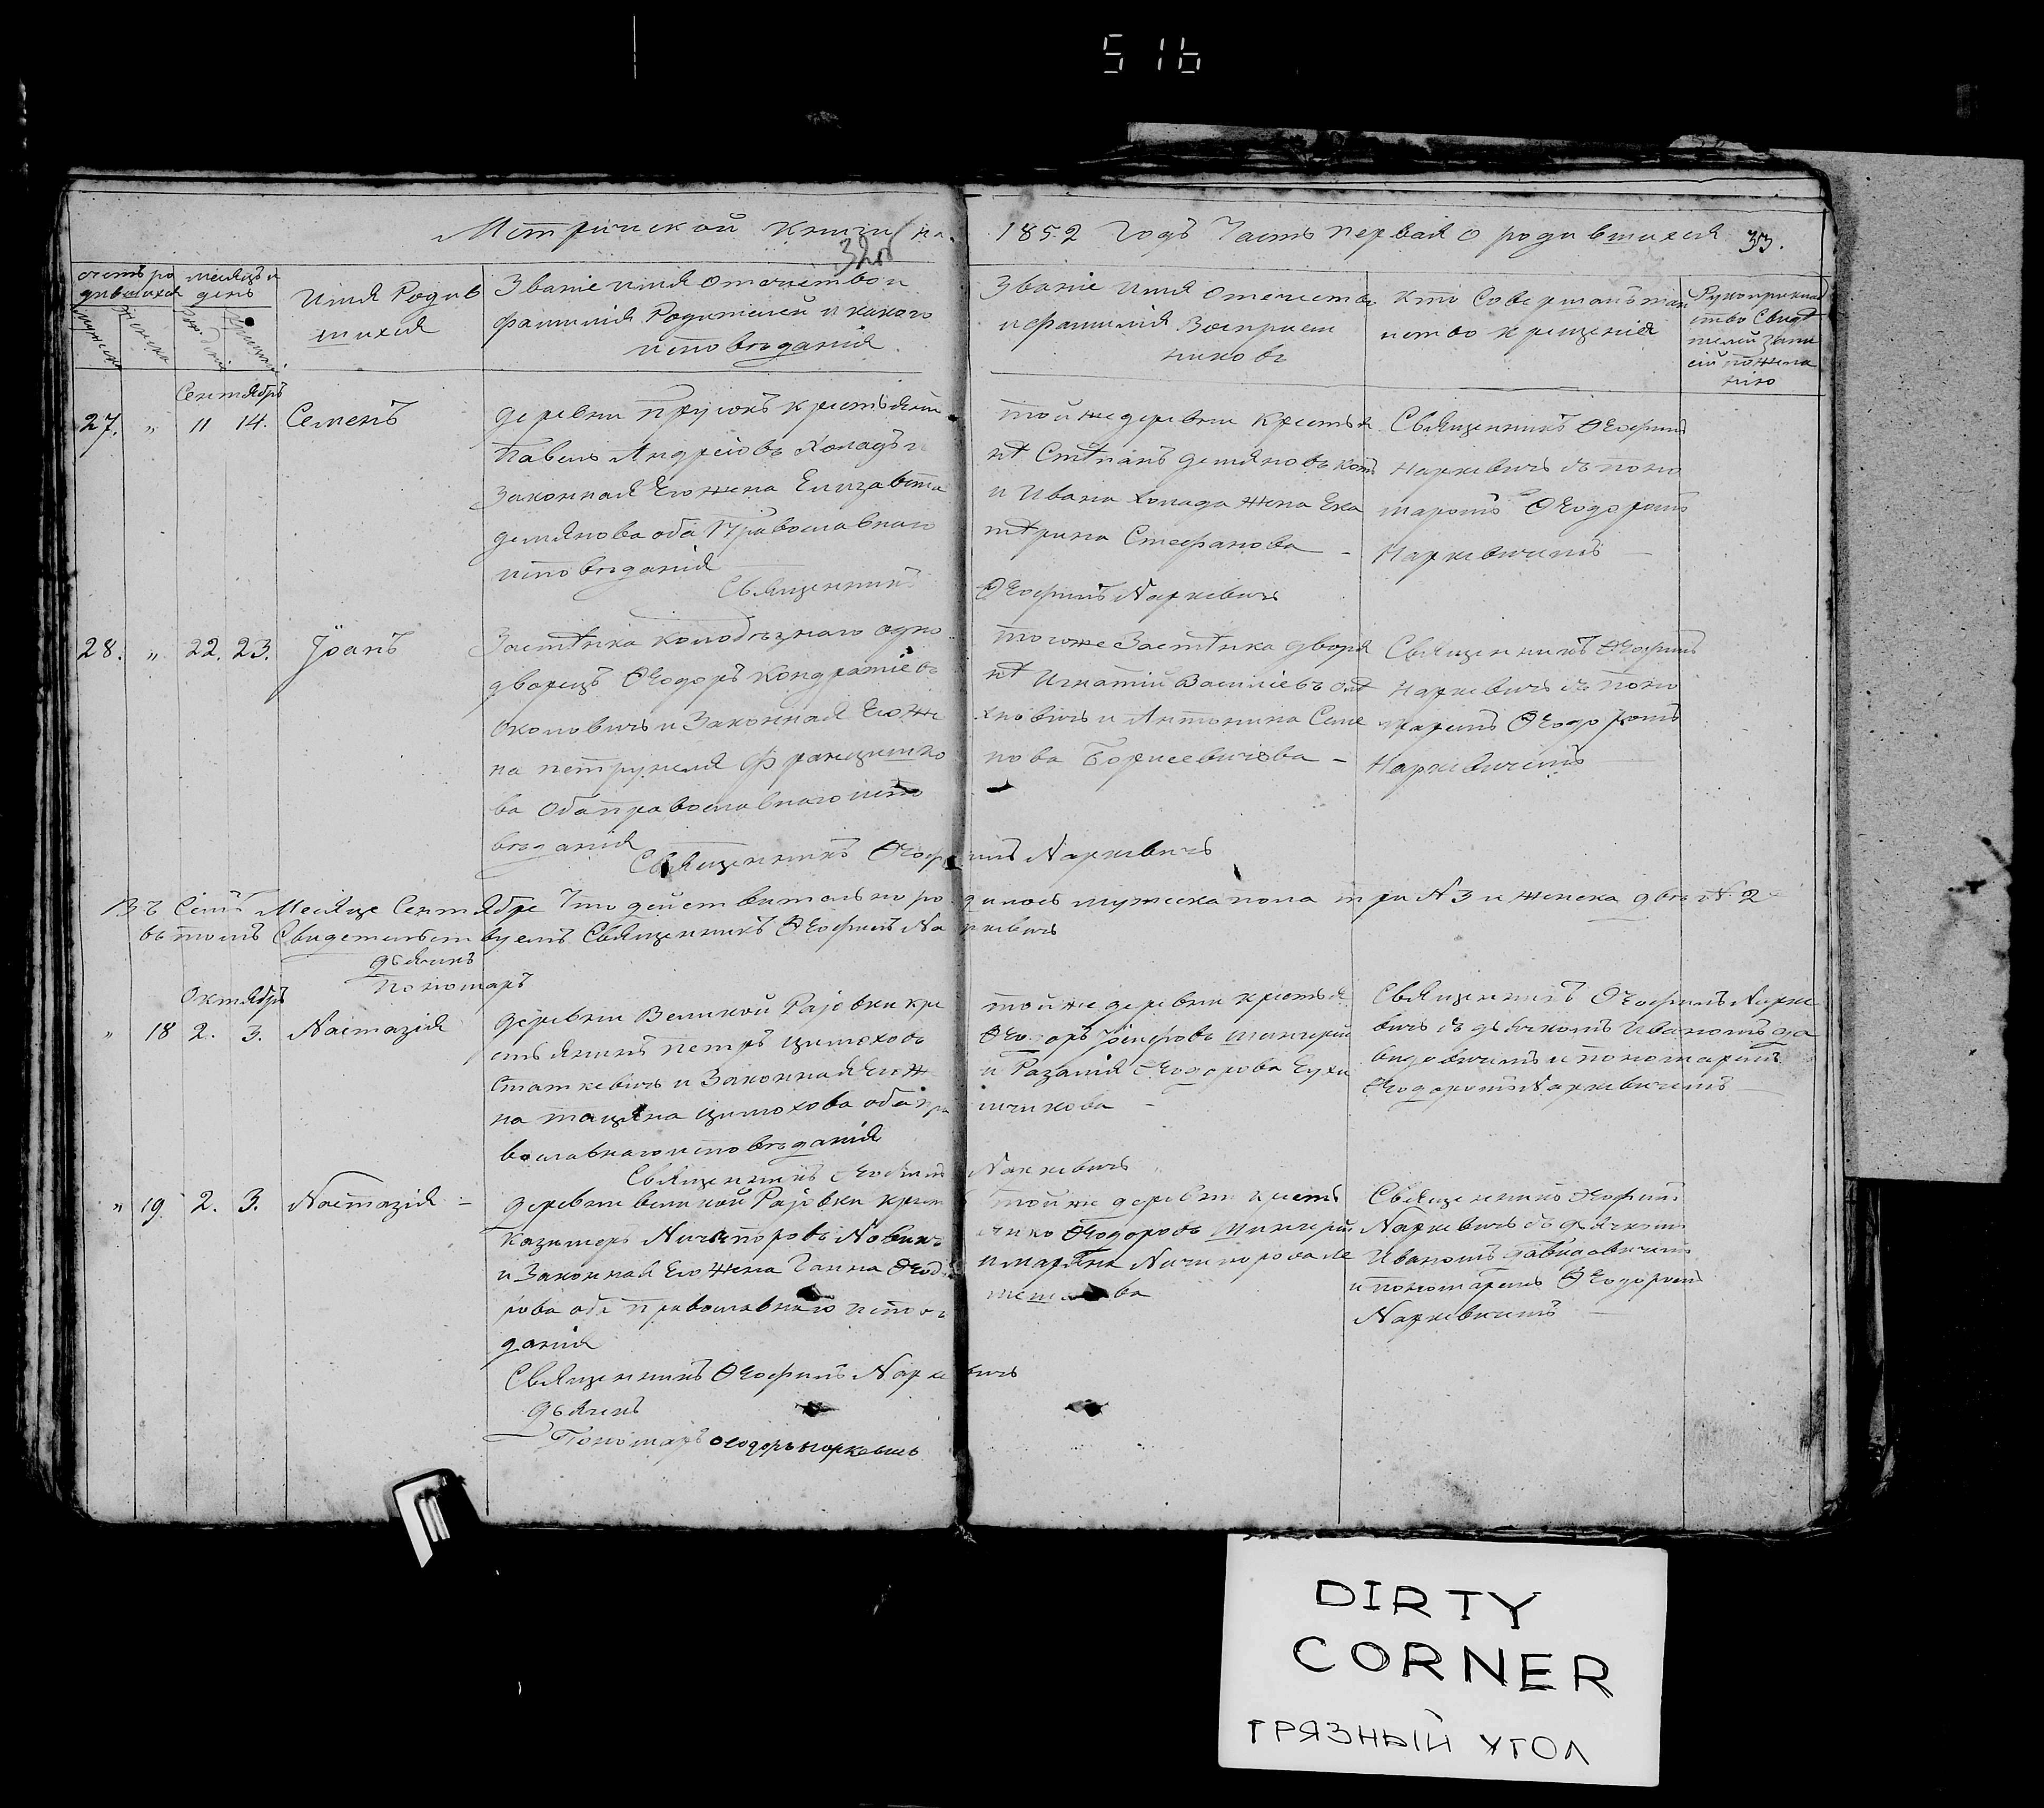 516
Метрической книги на
1852 годъ Часть первая о родившихся 33.
328
счетъ ро
дившихся
мужеска
женска
месяцъ и
день
рождения
крещения
имя Родив
шихся
Званіе имя отечество и
фамилія Родителей и какого
исповѣданія
Званіе имя отечество
и фамилія Воспріем
никовъ
кто Совершалъ таи
иство крещенія
Рукоприклад
ство Свидѣ
телей запи
сей по жела
нію
Сентябрь
27. " 11 14. Семенъ
деревни Прусокъ крестьянин
Павелъ Андреіовъ Хопадъ и
Законная Его жена Елизавета
демянова оба Православнаго
исповѣданія
Священникъ
той же деревни Крестья
нѣ Стѣпанъ демяновъ
и Ивана Хопада жена Ека
тѣрина Стефанова -
Ѳеофилъ Наркевичъ
Священникъ Ѳеофилъ
Наркевичъ съ поно
маромъ Ѳеодоромъ
Наркевичемъ
28. " 22. 23. Іоанъ
Застѣнка колодѣзнаго одно
дворецъ Ѳеодоръ Кондратіевъ
Околовичъ и Законная Его же
на петрунеля Францишко
ва Оба православнаго испо
вѣданія
Священникъ Ѳеофилъ Наркевичъ
того же Застѣнка дворя
нѣ Игнатій Василіевъ Олѣ
хновичъ и Антонина Семе
нова Борисевичова -
Священникъ Ѳеофилъ
Наркевичъ съ поно
маремъ Ѳеодоромъ
Наркевичемъ
Въ Семъ Месяце Сентябре Что действительно родилось мужеска пола три N 3 и женска двѣ N 2
въ томъ Свидетельствуемъ Священникъ Ѳеофилъ Наркевичъ
дьячекъ
Пономаръ
Октябрь
" 18 2. 3. Настазія
деревни Великой Раіовки кре
стьянинъ Петръ Цимоховъ
Статкевичъ и Законная Его же
на тацяна Цимохова оба пра
вославнаго исповѣданія
Священникъ Ѳеофилъ Наркевичъ
той же деревни крестья
Ѳеодоръ Іосифовъ
и Разалія Ѳеодорова

Священникъ Ѳеофилъ Нарке
вичъ съ дьячкомъ Иваномъ да
видовичемъ и пономаремъ
Ѳеодоромъ Наркевичемъ
" 19. 2. 3. Настазія -
деревни великой Раіовки крест
Казимеръ Ничипоровъ Новикъ
и Законная Его жена Ганна Ѳеодо
рова оба православнаго исповѣ
данія
Священникъ Ѳеофилъ Наркевичъ
дьячекъ
Пономаръ Ѳеодоръ Наркевичъ
той же деревни крестя
Ѳеодоровъ
и марьяна Ничипорова
Священникъ Ѳеофилъ
Наркевичъ съ дьячкомъ
Иваномъ давидовичемъ
и пономаремъ Ѳеодоромъ
Наркевичемъ
DIRTY
CORNER
ГРЯЗНЫЙ УГОЛ